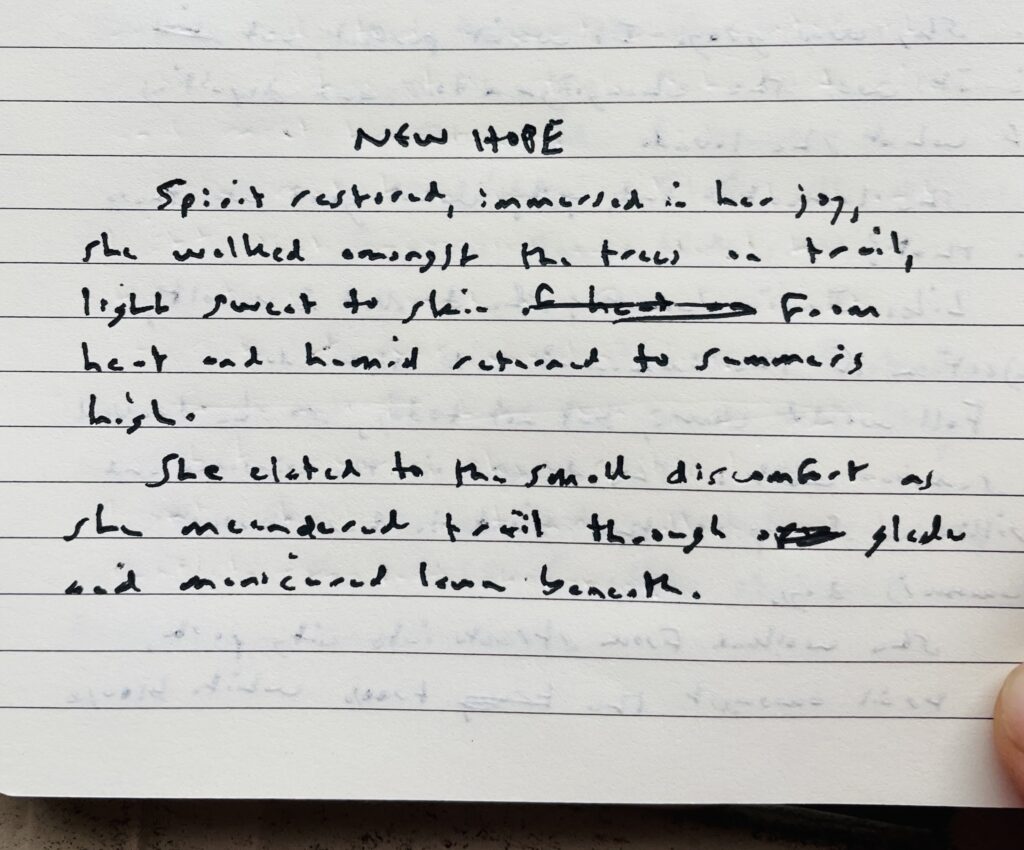 NEW HOPE
Spirit restored, immersed in her joy,
she walked amongst the trees on trail,
light sweat to skin From
heat and humid returned to summers
high.
She elated to the small discomfort as
she meandered trail through glade
and manicured lawn beneath.